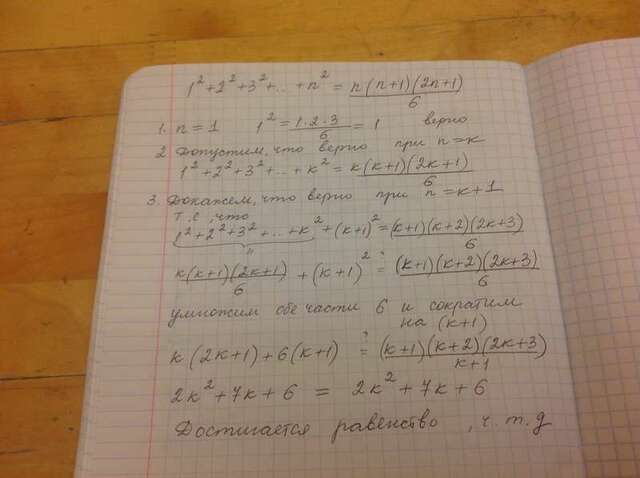 1² + 2² + 3² + .. + n² = n(n+1)(2n+1)/6
1. n = 1 1² = 1·2·3/6 = 1 верно
2. Допустим, что верно при n = k
1² + 2² + 3² + .. + k² = k(k+1)(2k+1)/6
3. Докажем, что верно при n = k + 1
т.е, что
1² + 2² + 3² + .. + k² + (k+1)² = (k+1)(k+2)(2k+3)/6
"
k(k+1)(2k+1)/6 + (k+1)² ?= (k+1)(k+2)(2k+3)/6
умножим обе части 6 и сократим
на (k+1)
k(2k+1) + 6(k+1) ?= (k+1)(k+2)(2k+3)/k+1
2k² + 7k + 6 = 2k² + 7k + 6
Достигается равенство, ч.т.д